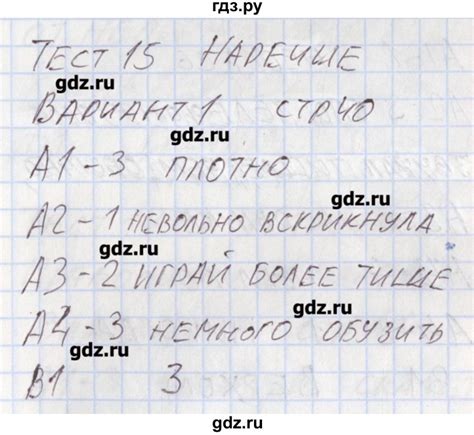 гдз.ру
Тест 15 Наречие
gdz.ru
Вариант 1 стр40
gdz.ru
А1 - 3 плотно
gdz.ru
А2 - 1 невольно вскрикнула
А3 - 2 играй более тише
gdz.ru
gdz.ru
А4 - 3 немного обузить
gdz.ru
В1 3
gdz.ru